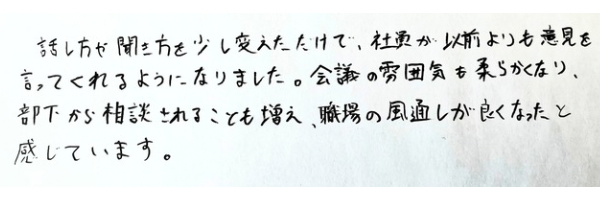 話し方や聞き方を少し変えただけで、社員が以前よりも意見を
言ってくれるようになりました。会議の雰囲気も柔らかくなり、
部下から相談されることも増え、職場の風通しが良くなったと
感じています。